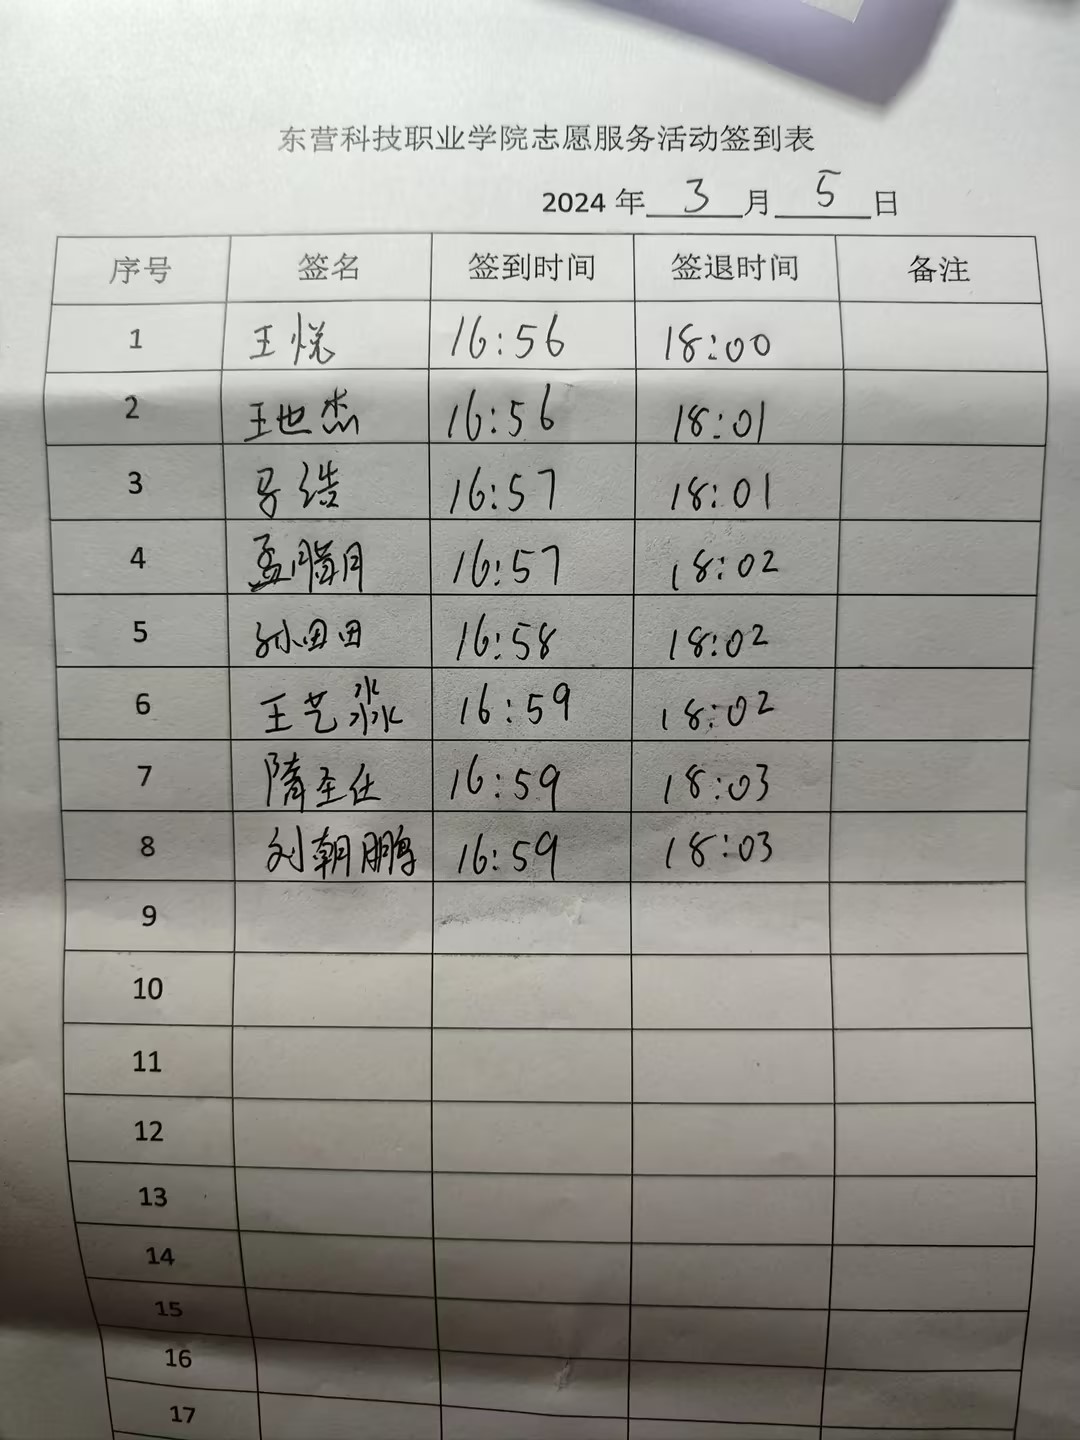 东营科技职业学院志愿服务活动签到表
2024 年 3 月 5 日
序号 签名 签到时间 签退时间 备注
1 王悦 16:56 18:00
2 王世杰 16:56 18:01
3 马浩 16:57 18:01
4 孟腊月 16:57 18:02
5 孙田田 16:58 18:02
6 王艺淼 16:59 18:02
7 隋圣仕 16:59 18:03
8 刘朝鹏 16:59 18:03
9
10
11
12
13
14
15
16
17